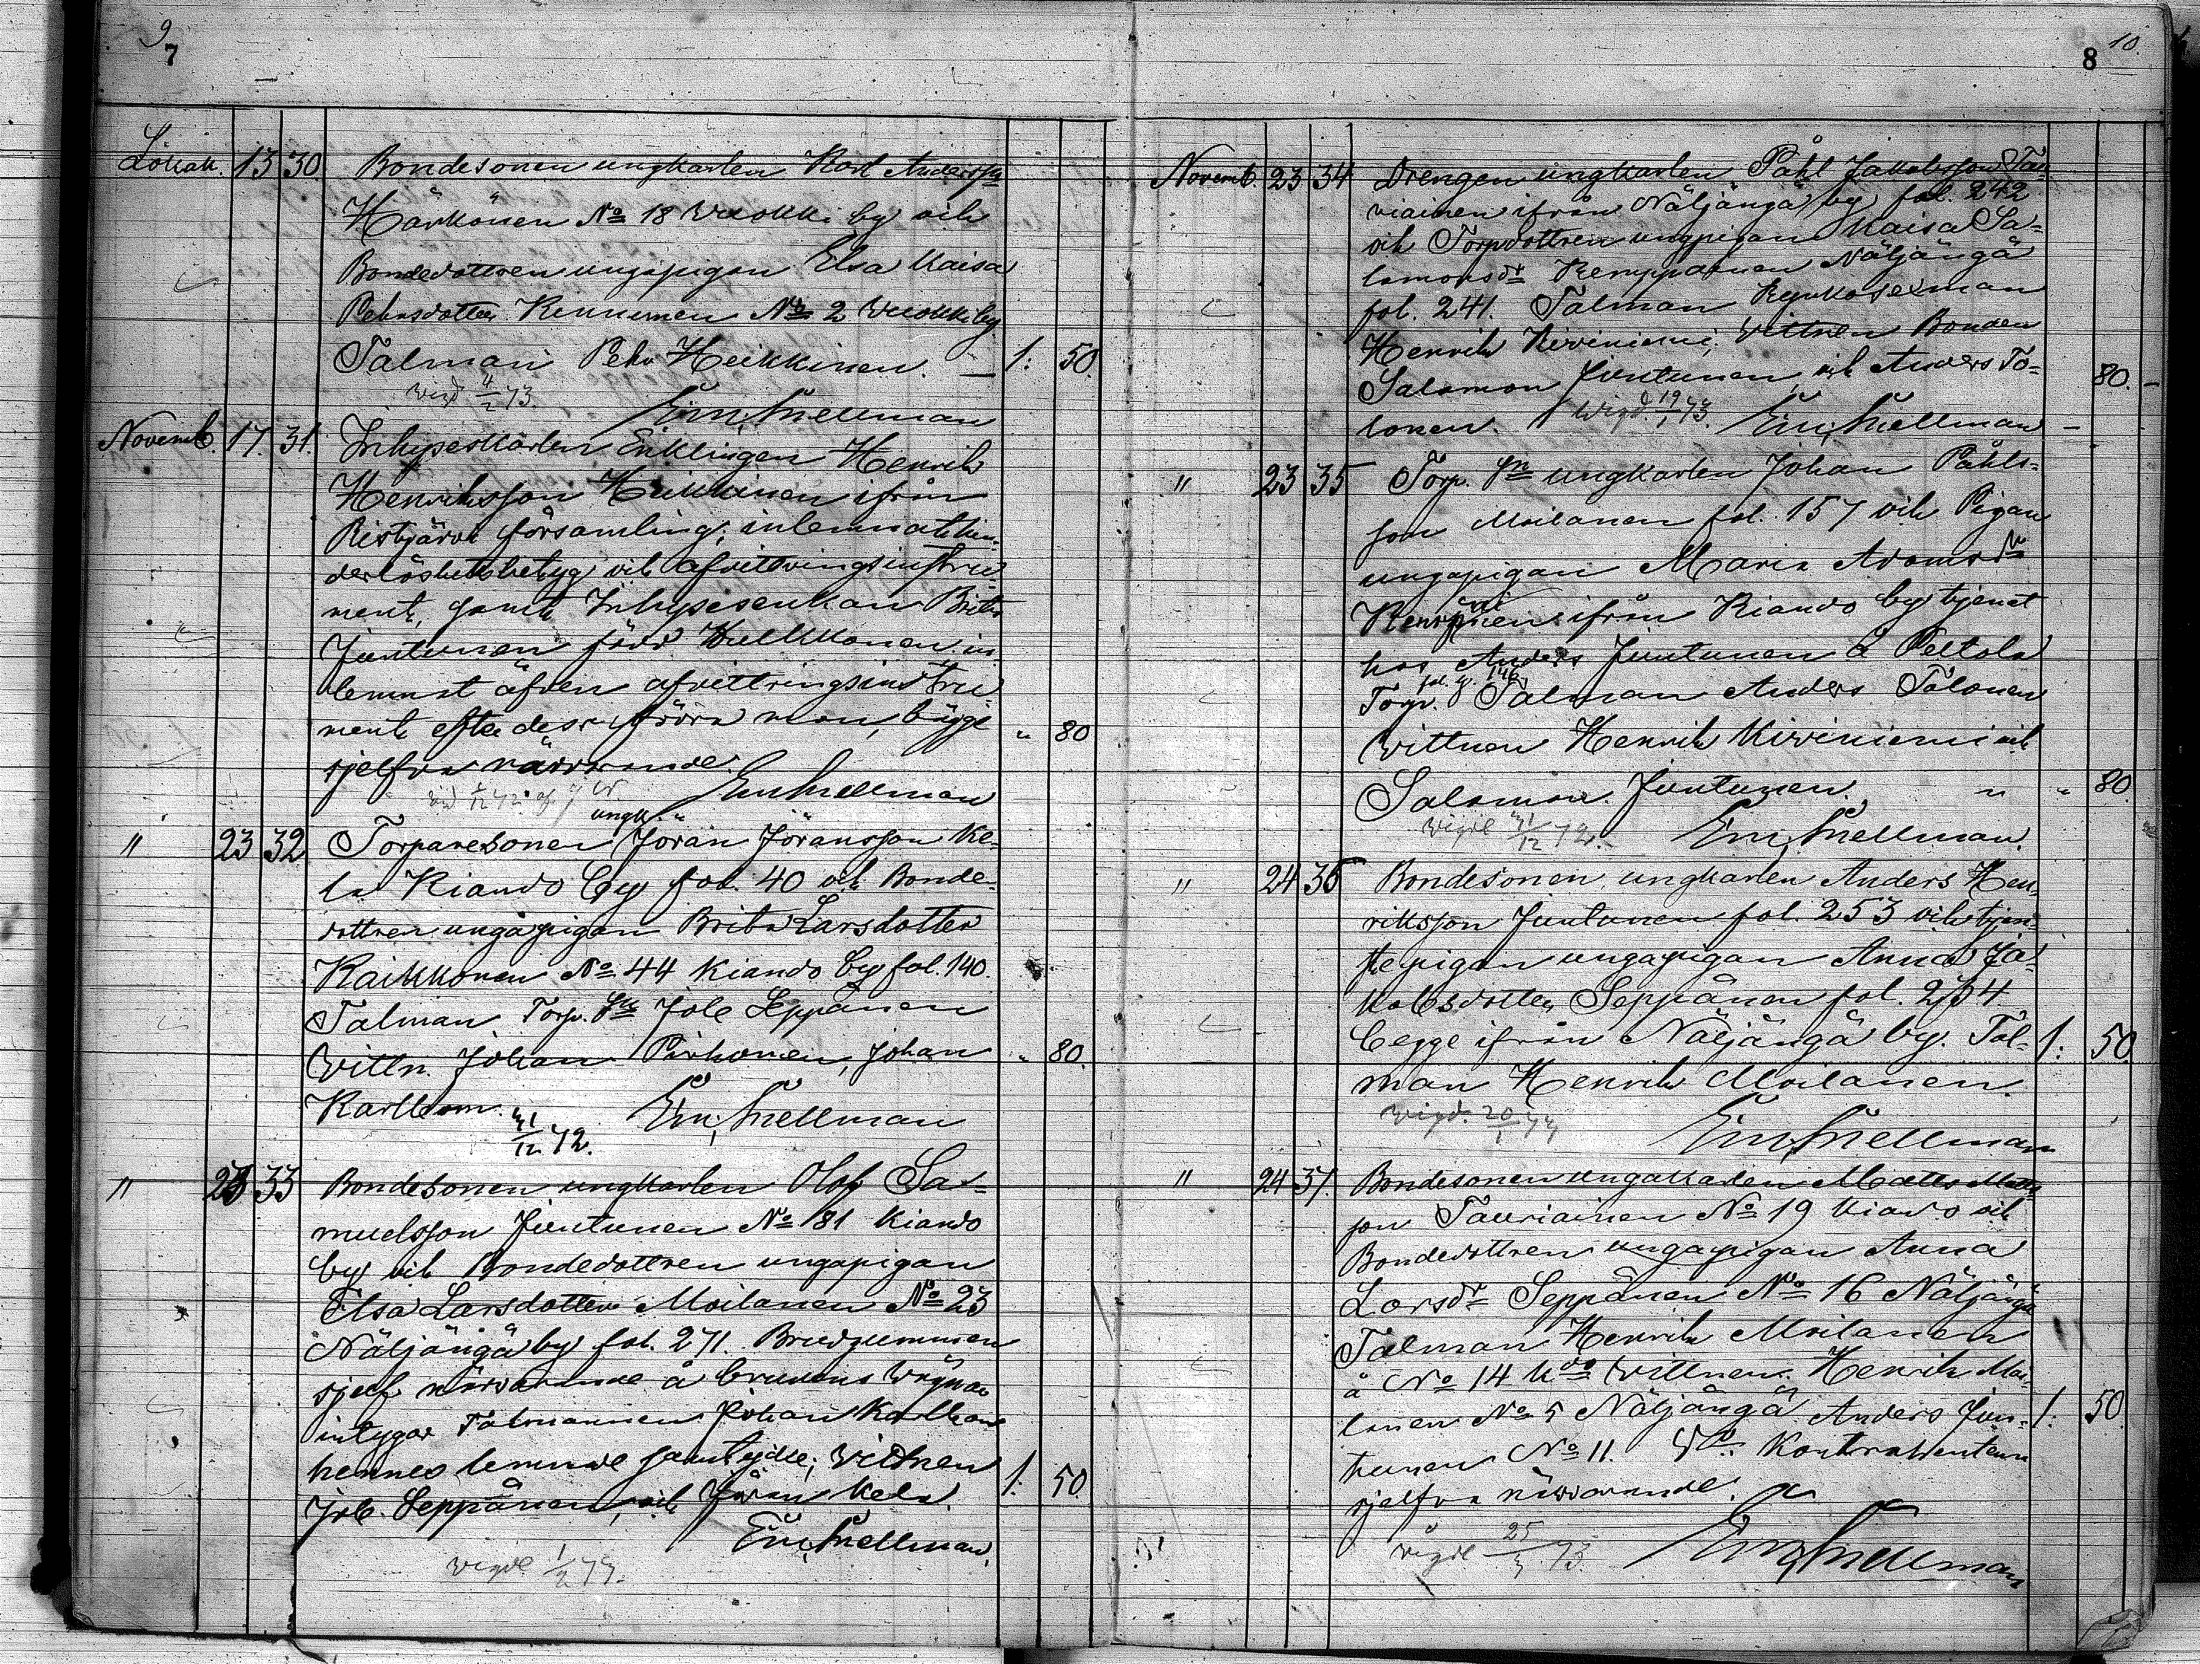 9
7
Lokak. 13 30. Bondesonen ungkarlen Karl Andersson
Härkönen No 18 Wuokki by och
Bondedottren ungapigan Elsa Kaisa
Pehrsdotter Kinnunen No 2 Wuokki by
Talman Pehr Heikkinen. — 1: 50.
vigd 4/2 73.
Em. Snellman
Novemb. 17. 31. Inhyseskarlen Enklingen Henrik
Henriksson Heikkinen ifrån
Ristijärvi församling, inlemnat hin-
derlöshetsbetyg och afvittringsinstru-
ment, samt Inhysesenkan Brita
Juntunen född Hulkkonen in-
lemnat äfven afvittringsinstru-
ment efter dess förra man, bägge
sjelfva närvarande. " 80
Em Snellman
ungk.
" 23 32 Torparesonen Jöran Jöransson Ke-
la Kiando by fol. 40 och Bonde-
dottren ungapigan Brita Larsdotter
Kaikkonen No 44 Kiando by fol. 140.
Talman Torp. Sn Job Seppänen
Wittn. Johan Pirhonen, Johan " 80.
Karlbom.
31/12 72.
Em. Snellman
" 23 33 Bondesonen ungkarlen Olof Sa-
muelsson Juntunen No 81 Kiando
by och Bondedottren ungapigan
Elsa Larsdotter Moilanen No 23
Näljängä by fol. 271. Brudgummen
sjelf närvarande å brudens vägnar
intygar Talmannen Johan Karlbom
hennes lemnade samtycke; Wittnen
Job. Seppänen, och Jöran Kela. 1. 50.
Em. Snellman.
vigde 1/2 73.
8 10.
Novemb. 23 34 Drengen ungkarlen Påhl Jakobsson Tau-
riainen ifrån Näljängä by fol. 242
och Torpdottren ungpigan Kaisa Sa-
lomonsdr Kemppainen Näljängä
fol. 241. Talman Kyrkosexman
Henrik Kiviniemi, Wittnen Bonden
Salomon Juntunen, och Anders To- 80. —
lonen. Wigd. 19/1 73. Em. Snellman —
" 23 35 Torp. Sn ungkarlen Johan Påhls-
son Moilanen fol. 157 och Pigan
ungapigan Maria Adamsdr
ifrån Kiando by tjenat
hos Anders Juntunen å Peltola
Torp. Talman Anders Tolonen
Wittnen Henrik Kiviniemi och
Salomon Juntunen " " 80.
Vigde 31/12 72. Em. Snellman.
" 24 36 Bondesonen ungkarlen Anders Hen-
riksson Juntunen fol. 253 och tjen-
stepigan ungapigan Anna Ja-
kobsdotter Seppänen fol. 254
begge ifrån Näljängä by. Tal- 1: 50.
man Henrik Moilanen.
Wigd. 20/1 73
Em. Snellman
" 24 37. Bondesonen ungakarlen Matts Matts-
son Tauriainen No 19 Kiando och
Bondedottren ungapigan Anna
Larsdr Seppänen No 16 Näljängä
Talman Henrik Moilanen
å No 14 Wittnen. Henrik Moi-
lanen No 5 Näljängä Anders Jun- 1: 50.
tunen No 11. do. Kontrahenterna
sjelfva närvarande.
vigde 25/3 73 Em. Snellman